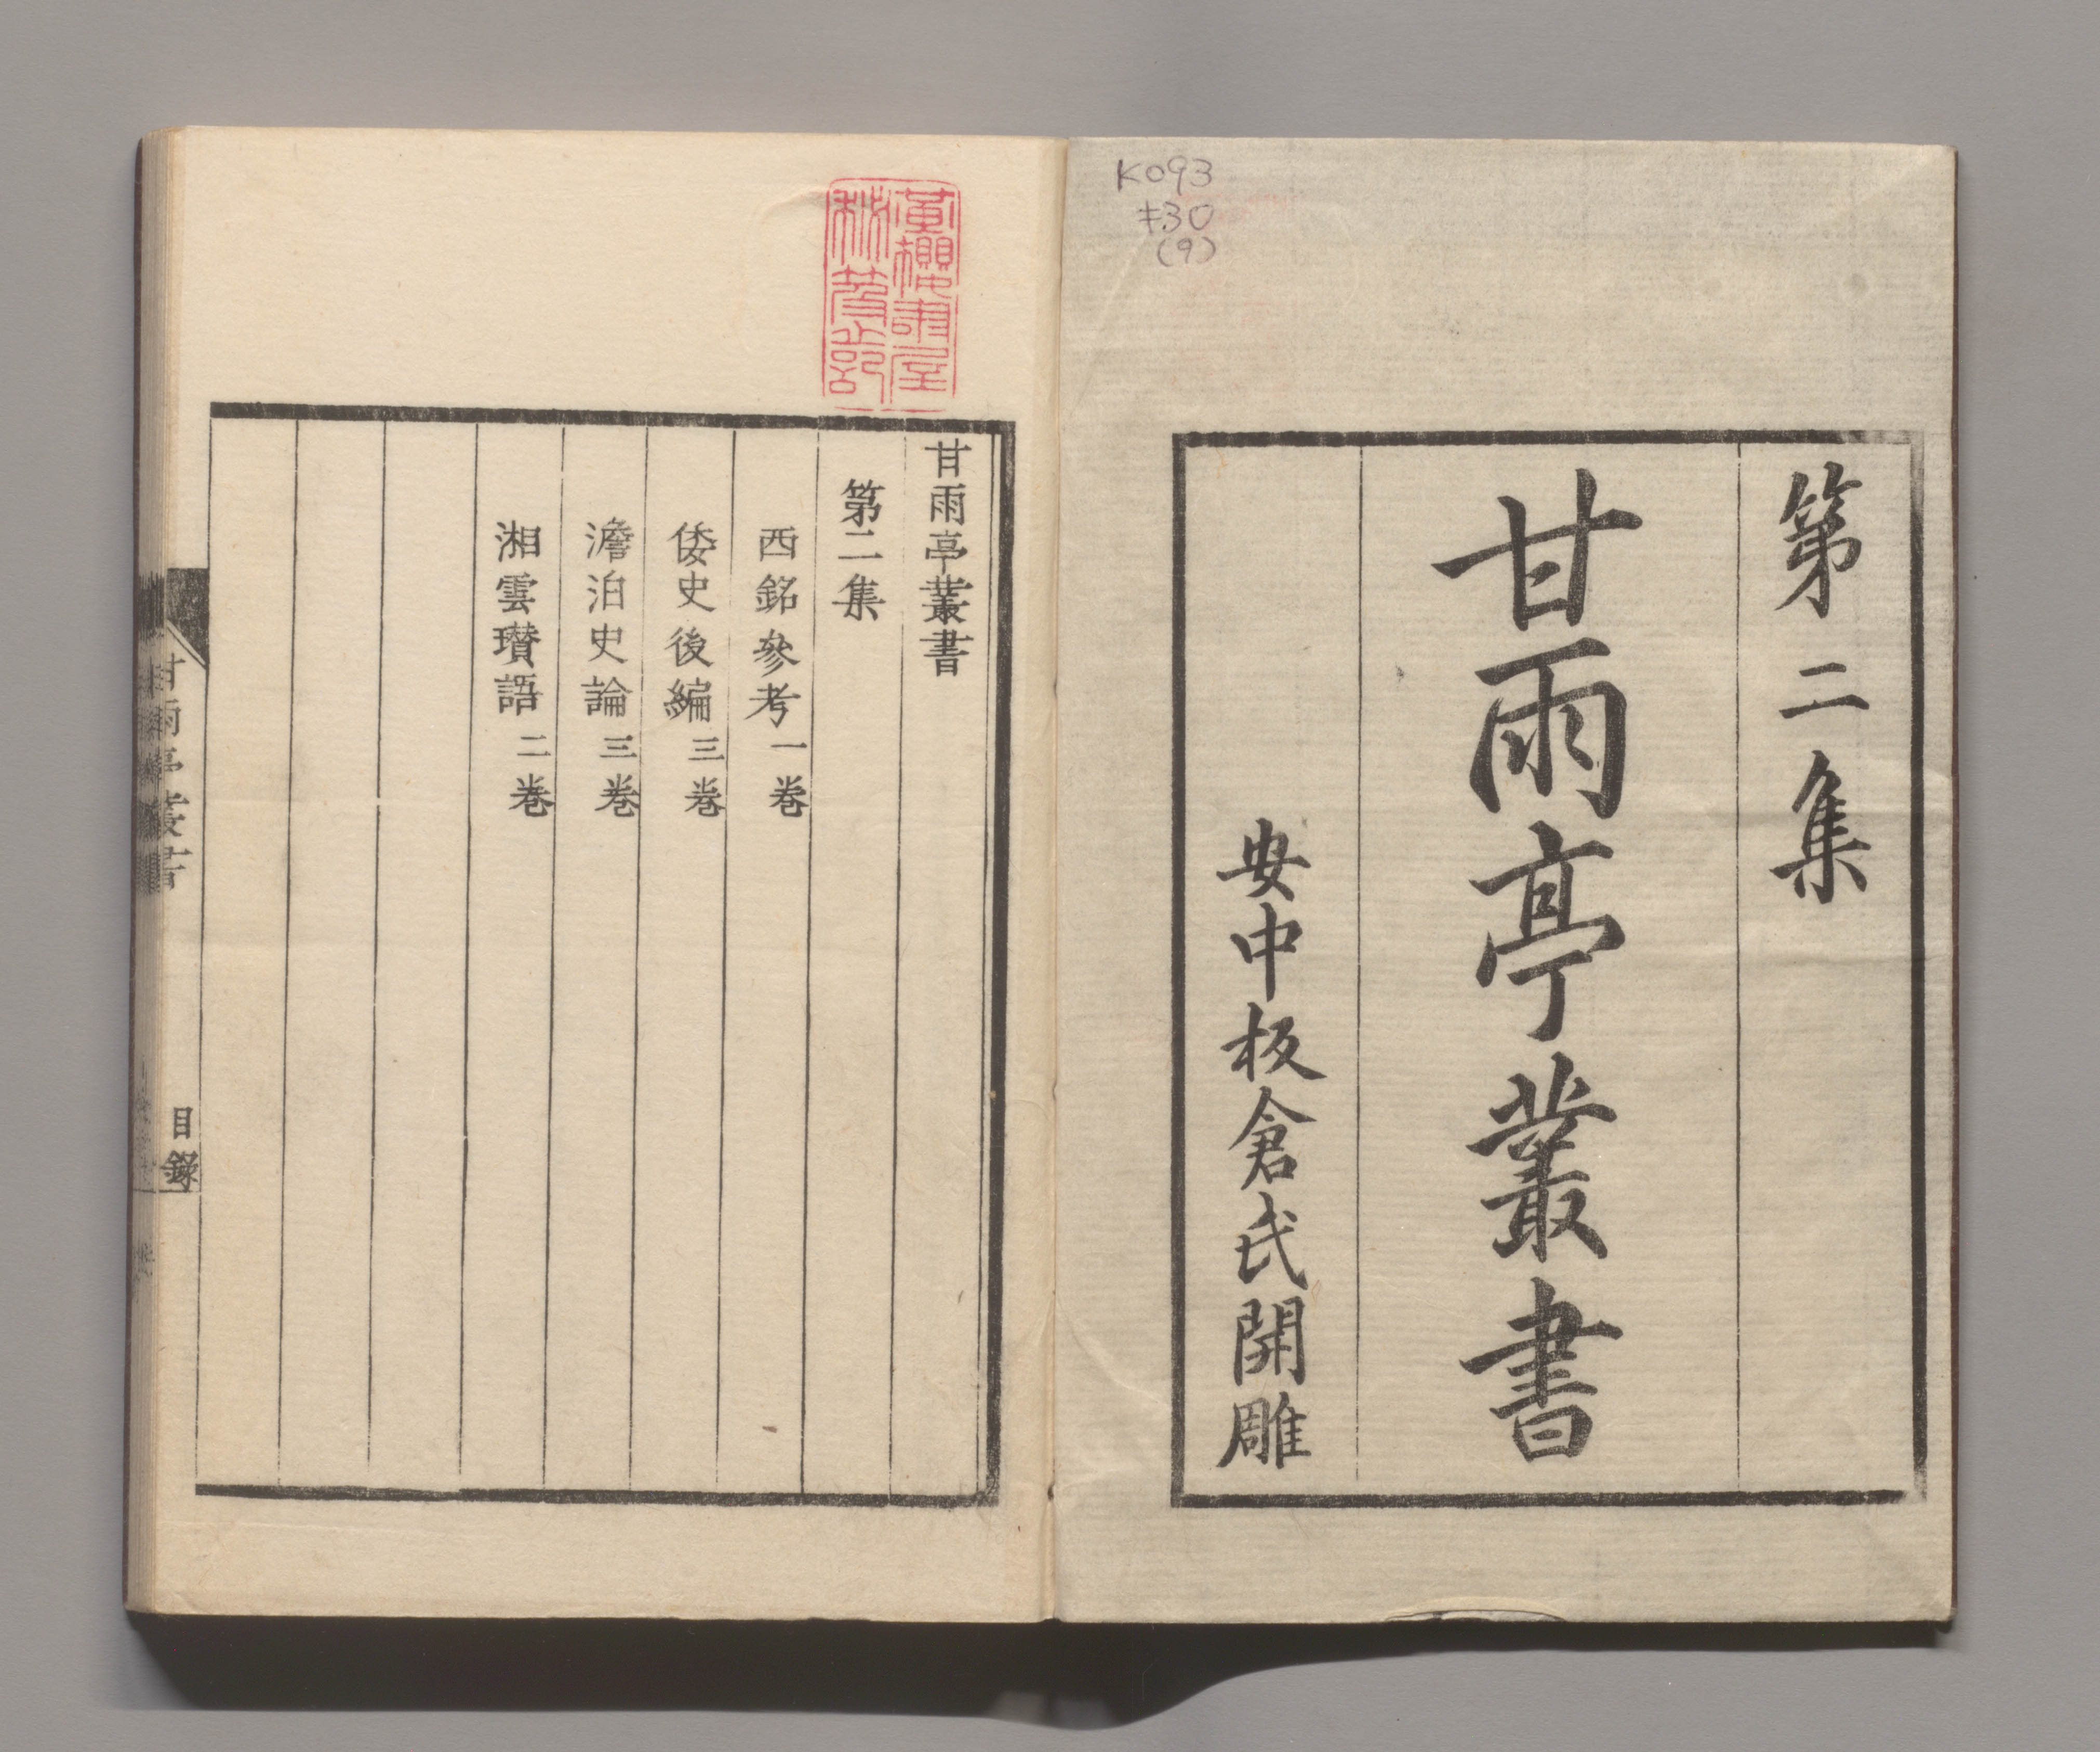 K093
キ30
(9)
第二集
甘雨亭叢書
安中板倉氏開雕
甘雨亭叢書
第二集
西銘參考一卷
倭史後編三卷
澹泊史論三卷
湘雲瓚語二卷
甘雨亭叢書
目錄